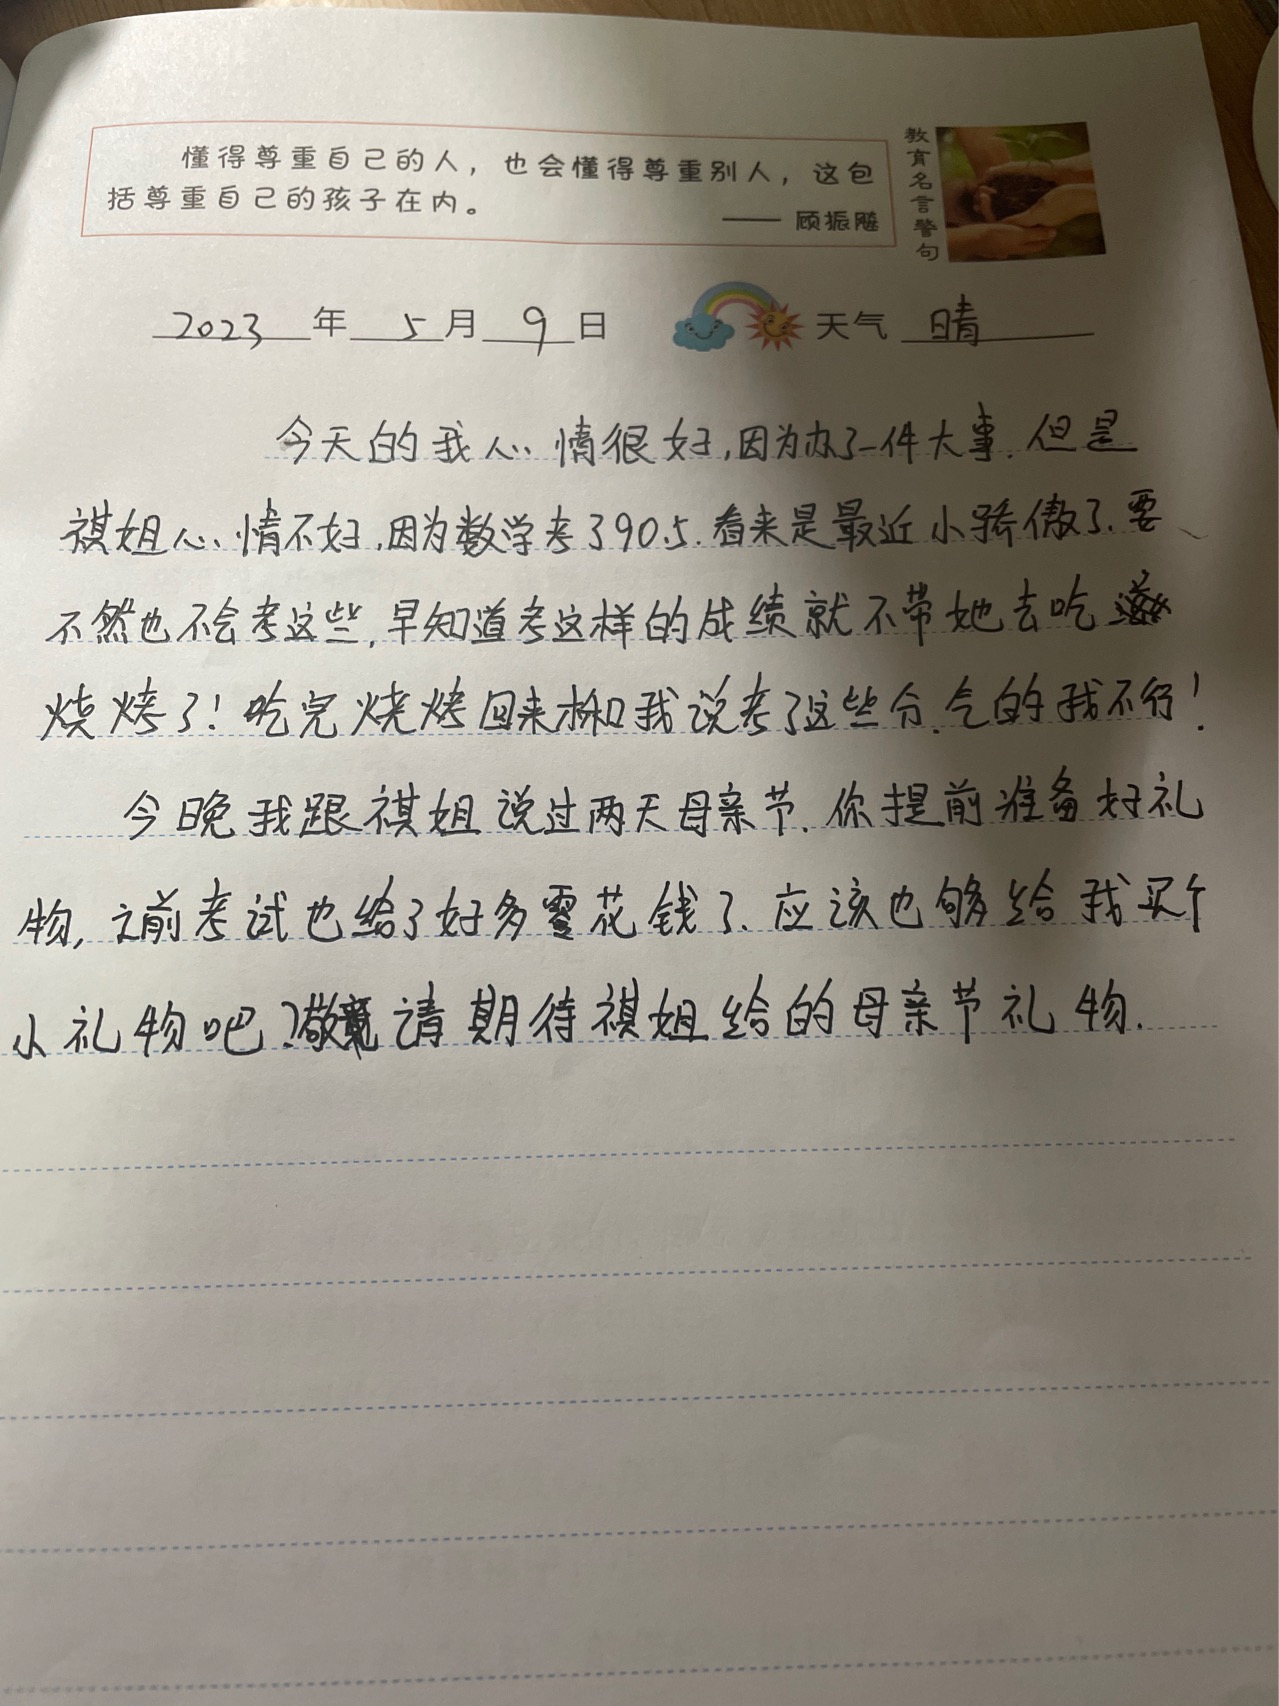 懂得尊重自己的人，也会懂得尊重别人，这包
括尊重自己的孩子在内。
—— 顾振飚
教育名言警句
2023年5月9日 天气 晴
今天的我心情很好,因为办了一件大事.但是
祺姐心情不好,因为数学考了90.5.看来是最近小骄傲了.要
不然也不会考这些,早知道考这样的成绩就不带她去吃
烧烤了!吃完烧烤回来才和我说考了这些分.气的我不行!
今晚我跟祺姐说过两天母亲节.你提前准备好礼
物,之前考试也给了好多零花钱了.应该也够给我买个
小礼物吧?敬请期待祺姐给的母亲节礼物.